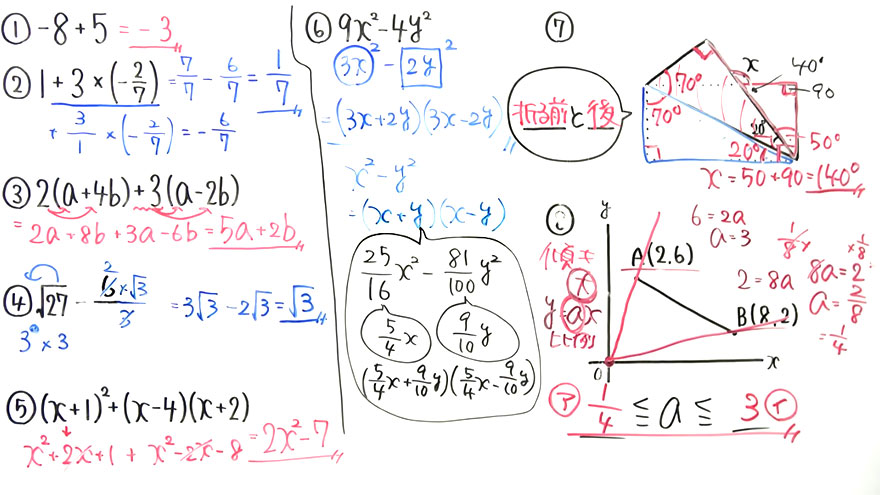 ① -8+5 = -3
② 1+3×(-2/7) = 7/7 - 6/7 = 1/7
+ 3/1 ×(-2/7) = -6/7
③ 2(a+4b)+3(a-2b)
= 2a+8b+3a-6b = 5a+2b
④ √27 - 6×√3/3 = 3√3-2√3 = √3
2
3²×3
⑤ (x+1)²+(x-4)(x+2)
x²+2x+1 + x²-2x-8 = 2x²-7
⑥ 9x²-4y²
3x² - 2y²
= (3x+2y)(3x-2y)
x²-y²
= (x+y)(x-y)
25/16 x² - 81/100 y²
5/4 x 9/10 y
(5/4 x+9/10 y)(5/4 x-9/10 y)
⑦
折る前と後
x 40°
70° 90
70°
20° 50°
20°
x = 50+90 = 140°
y
6=2a
a=3
A(2,6)
傾き
y=ax
比例
2=8a
B(8,2)
1/8× ×1/8
8a=2
a=2/8
=1/4
O x
ア 1/4 ≦ a ≦ 3 イ